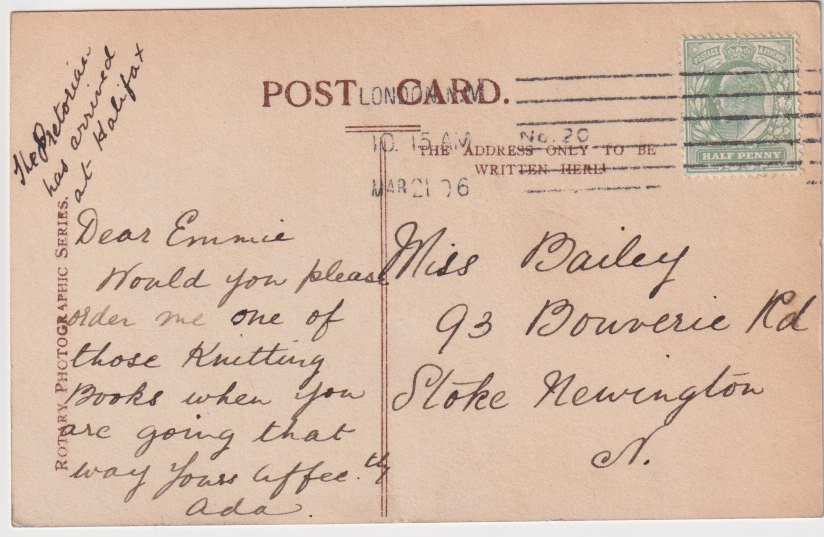 The Pretorian
has arrived
at Halifax
POST CARD.
LONDON N.W
10. 15 AM
MAR 21 06
No. 20
THE ADDRESS ONLY TO BE
WRITTEN HERE
HALF PENNY
ROTARY PHOTOGRAPHIC SERIES.
Dear Emmie
Would you please
order me one of
those Knitting
Books when you
are going that
way Yours affec.tly
Ada.
Miss Bailey
93 Bouverie Rd
Stoke Newington
N.